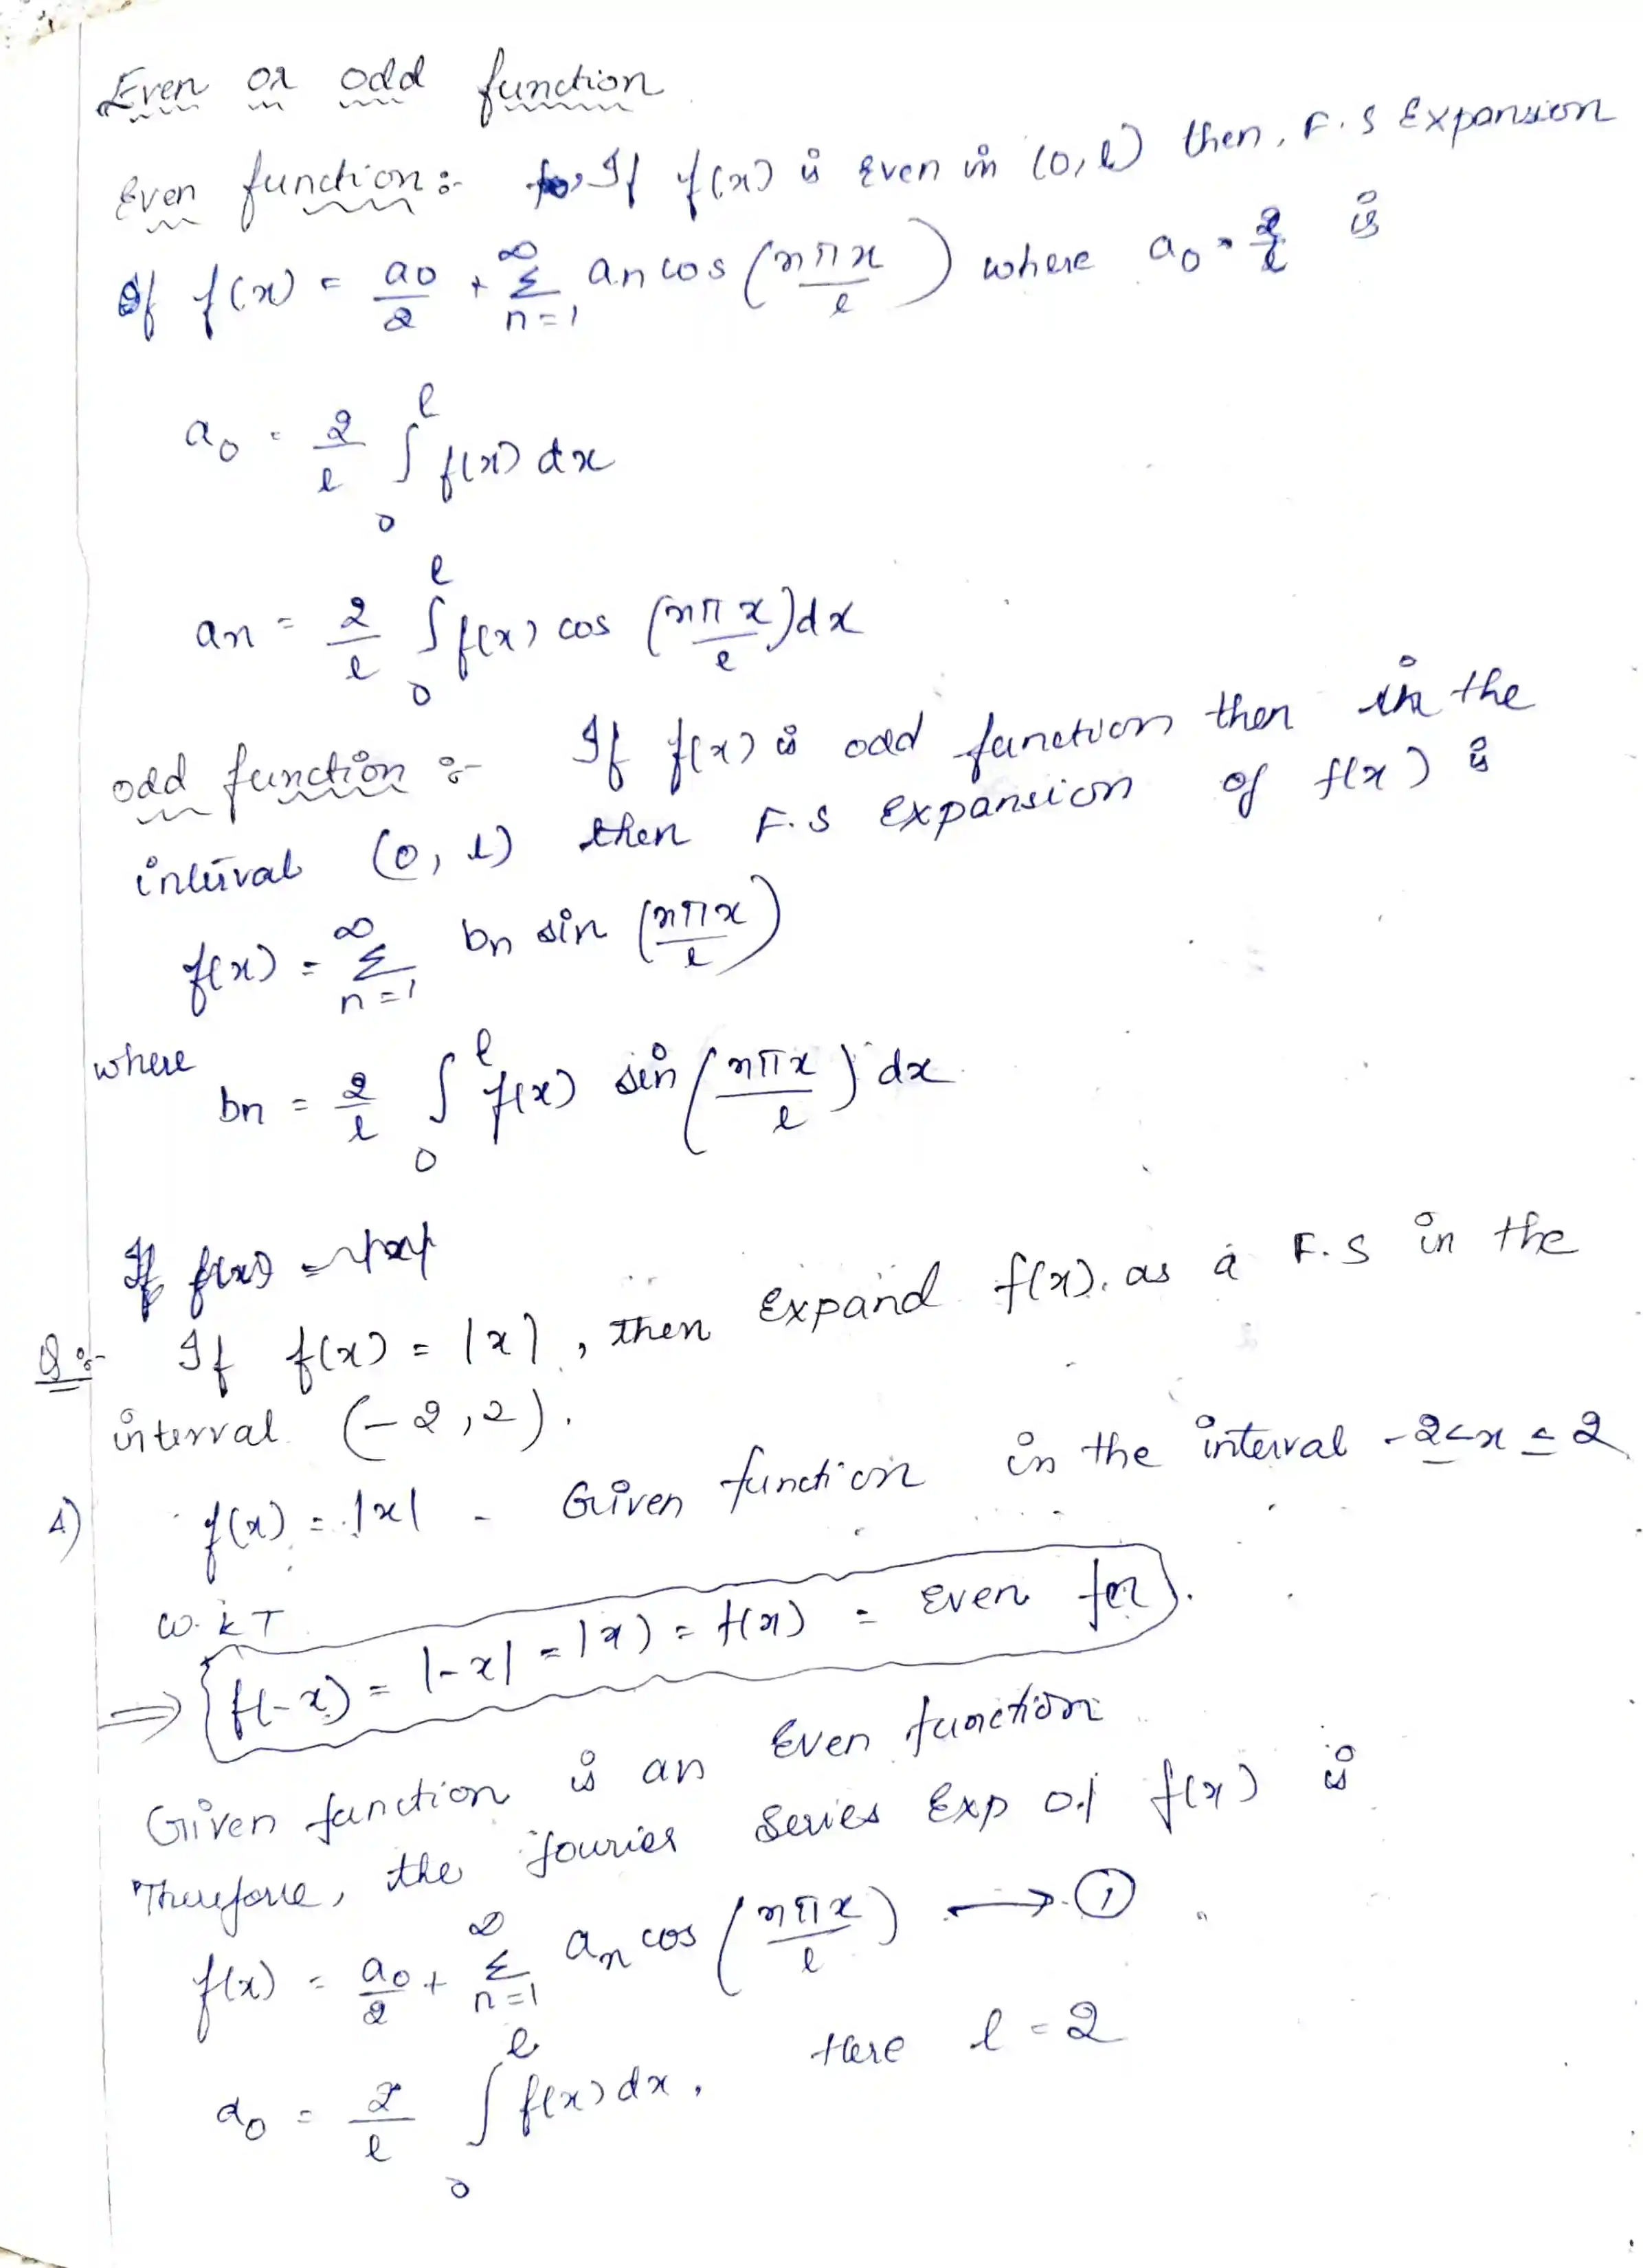 Even or odd function
Even function :- If f(x) is Even in (0, l) then, F.S Expansion
of f(x) = a0/2 + ∞ Σ n=1 an cos (nπx/l) where a0 = 2/l is
a0 = 2/l ∫ 0 l f(x) dx
an = 2/l ∫ 0 l f(x) cos (nπx/l) dx
odd function :- If f(x) is odd function then in the
interval (0, l) then F.S expansion of f(x) is
f(x) = ∞ Σ n=1 bn sin (nπx/l)
where
bn = 2/l ∫ 0 l f(x) sin (nπx/l) dx
If f(x) =
Q:- If f(x) = |x|, then Expand f(x). as a F.S in the
interval (-2,2).
A) f(x) = |x| - Given function in the interval -2<x≤2
W.K T
⇒ f(-x) = |-x| = |x) = f(x) = Even fn.
Given function is an Even function
Therefore, the fourier Series Exp of f(x) is
f(x) = a0/2 + ∞ Σ n=1 an cos (nπx/l) → ①
a0 = 2/l ∫ 0 l f(x) dx, Here l = 2